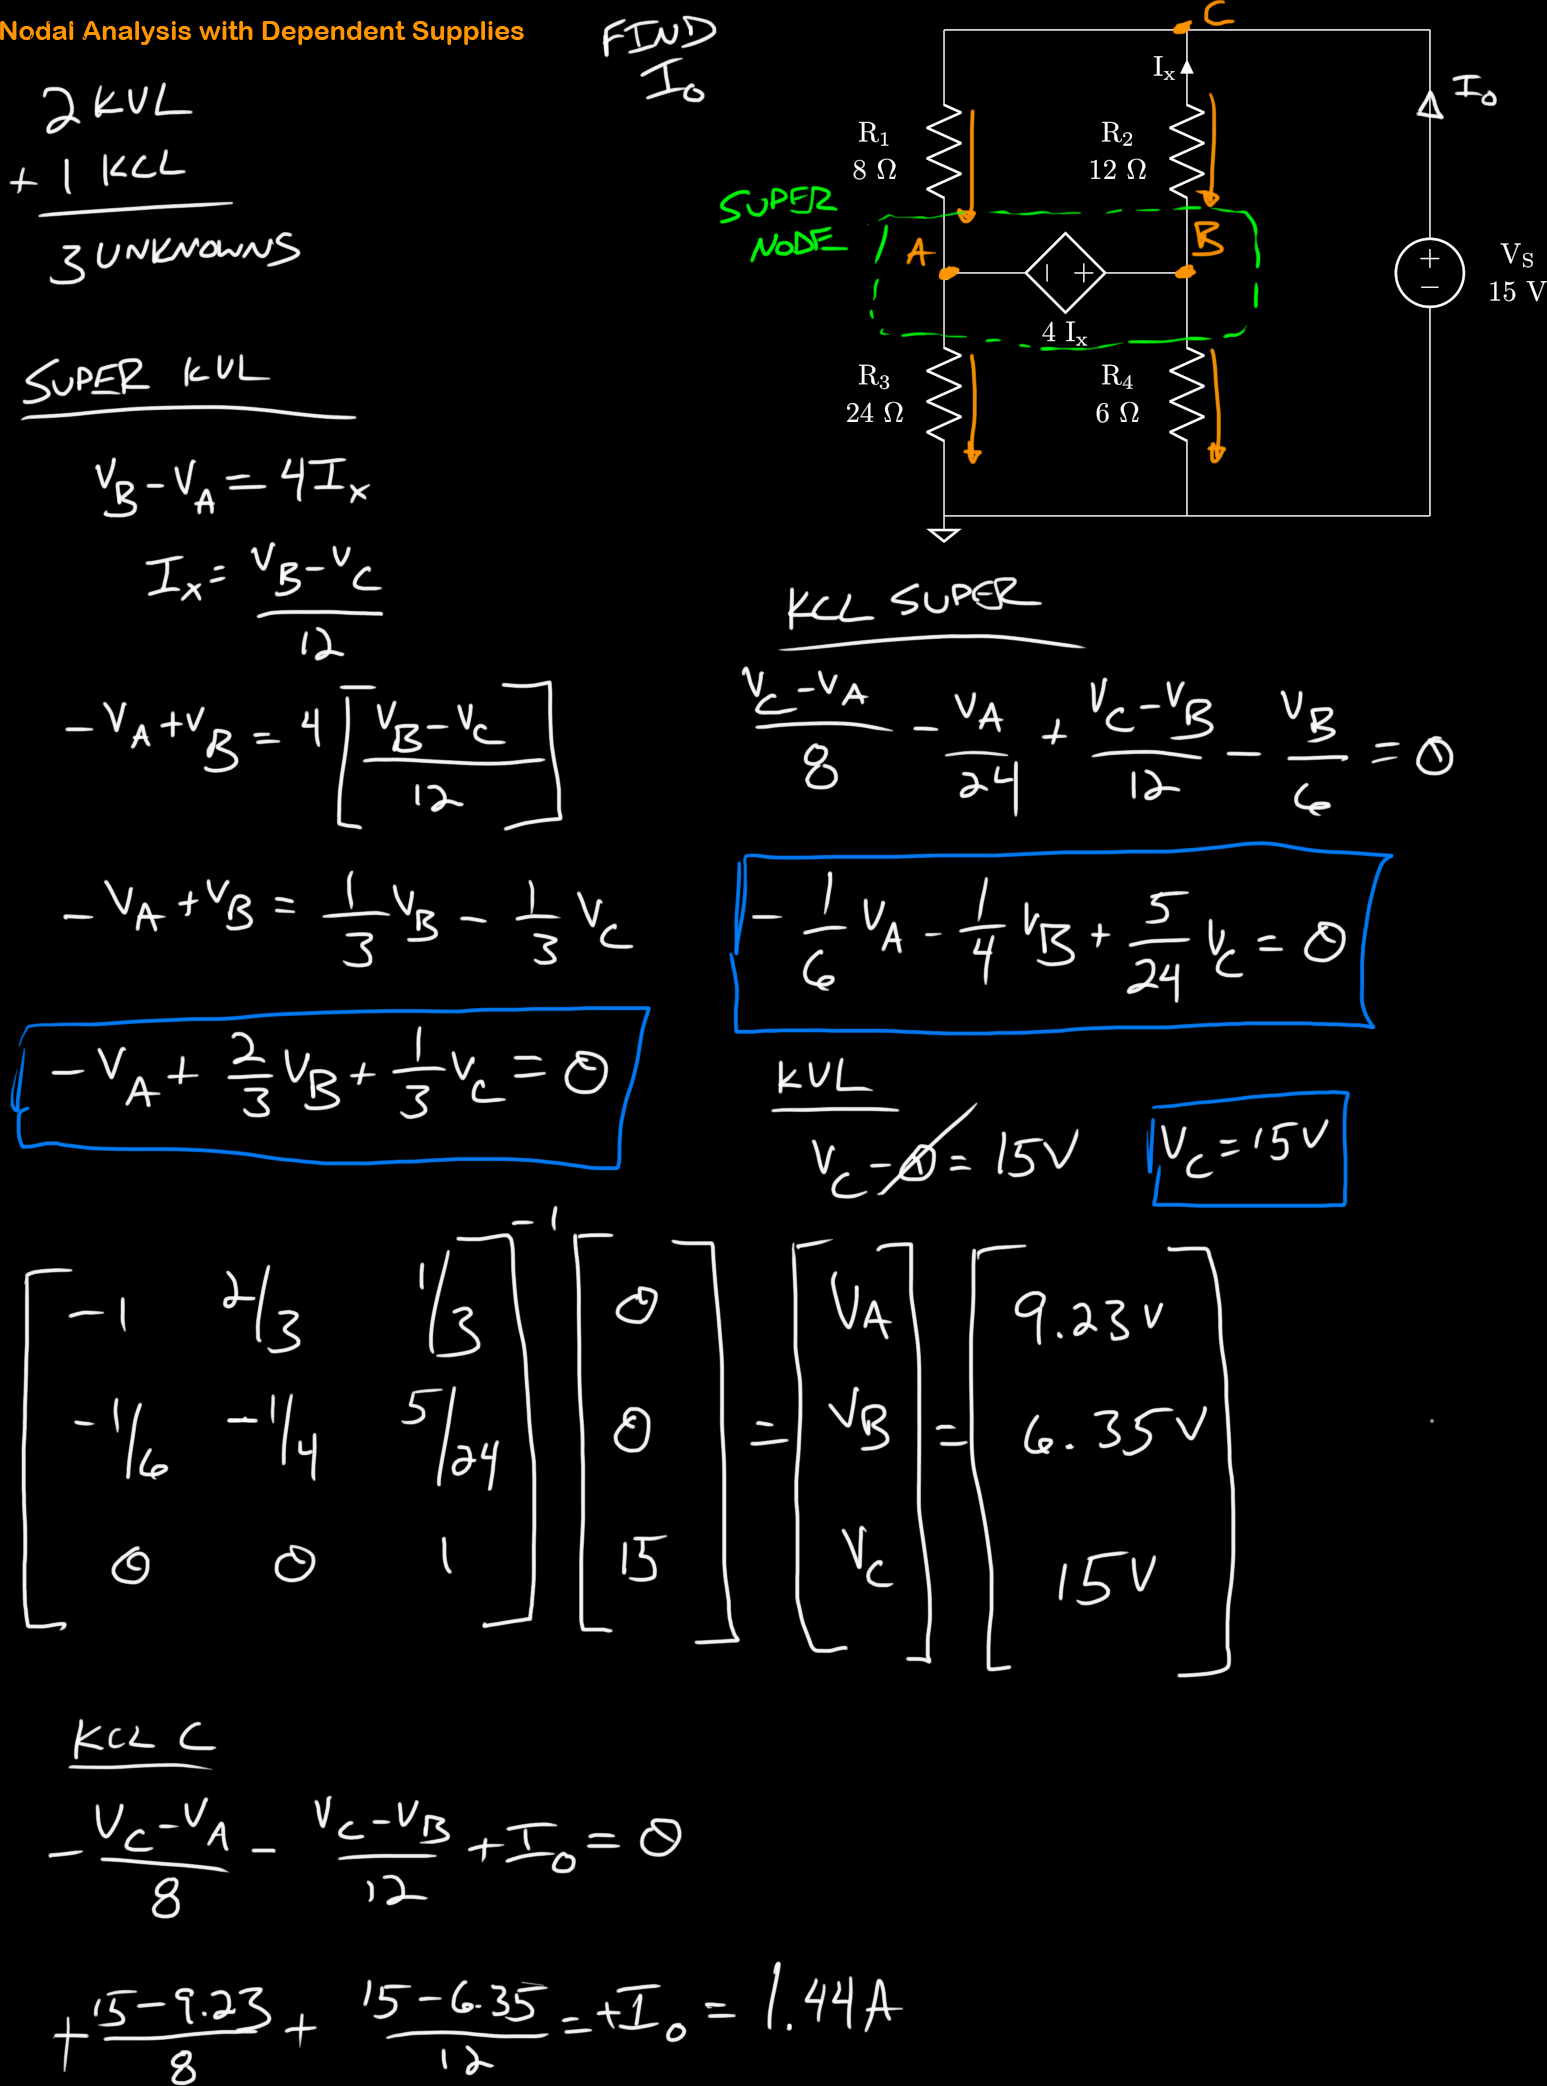 Nodal Analysis with Dependent Supplies
FIND
I₀
2 KVL
+ 1 KCL
3 UNKNOWNS
C
Iₓ
I₀
R₁
8 Ω
R₂
12 Ω
SUPER
NODE
A
B
− +
4 Iₓ
+
−
V_S
15 V
R₃
24 Ω
R₄
6 Ω
SUPER KVL
V_B − V_A = 4Iₓ
Iₓ = (V_B − V_C)/12
−V_A + V_B = 4[(V_B − V_C)/12]
−V_A + V_B = 1/3 V_B − 1/3 V_C
−V_A + 2/3 V_B + 1/3 V_C = 0
KCL SUPER
(V_C − V_A)/8 − V_A/24 + (V_C − V_B)/12 − V_B/6 = 0
−1/6 V_A − 1/4 V_B + 5/24 V_C = 0
KVL
V_C − 0 = 15V
V_C = 15V
[−1 2/3 1/3]⁻¹ [0] [V_A] [9.23V]
[−1/6 −1/4 5/24] [0] = [V_B] = [6.35V]
[0 0 1] [15] [V_C] [15V]
KCL C
−(V_C − V_A)/8 − (V_C − V_B)/12 + I₀ = 0
+(15 − 9.23)/8 + (15 − 6.35)/12 = +I₀ = 1.44A